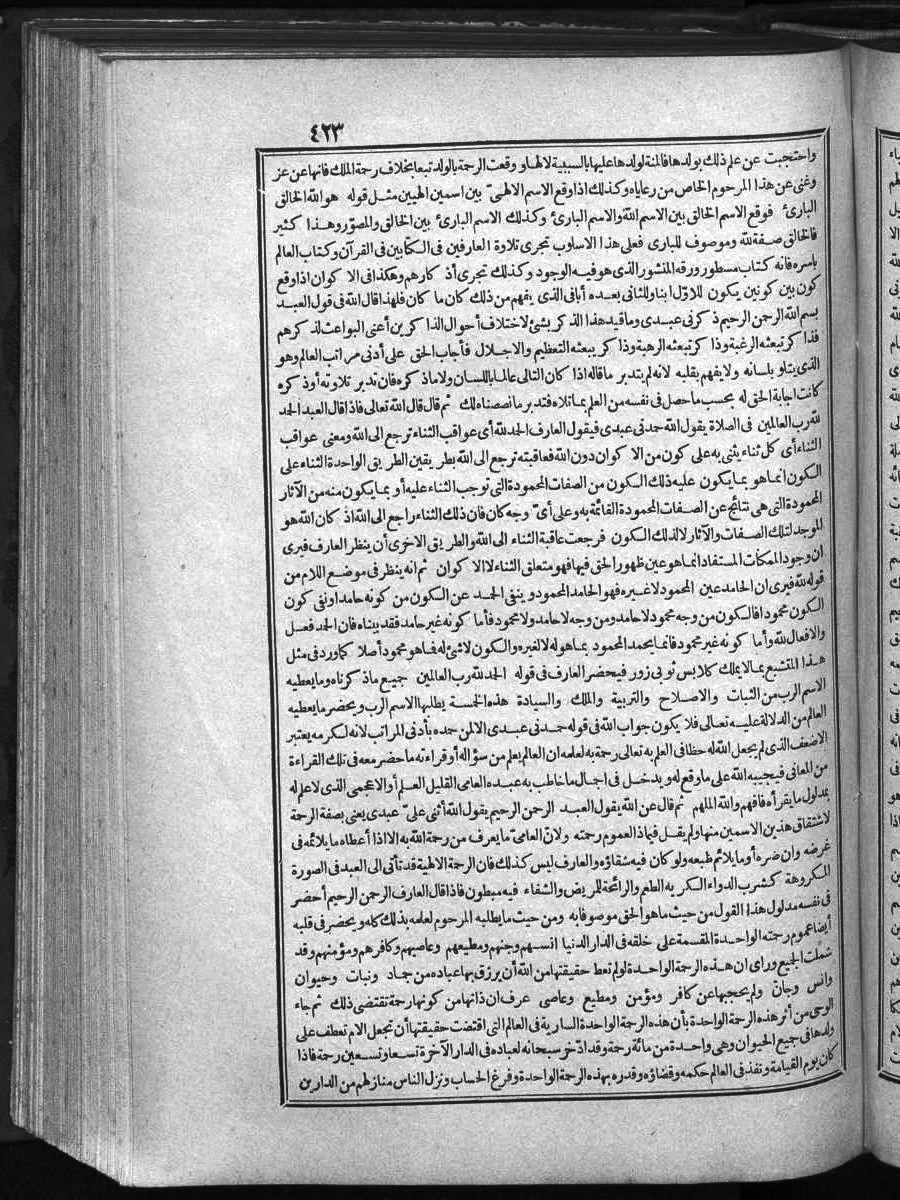 ٤٢٣
واحتجبت عن علم ذلك بولدها فالمنة لولدها عليها بالسببية لا لها و وقعت الرحمة بالولد تبعا بخلاف رحمة الملك فانها عن عز
وغنى عن هذا المرحوم الخاص من رعاياه وكذلك اذا وقع الاسم الالهى بين اسمين الهيين مثل قوله هو الله الخالق
البارئ فوقع الاسم الخالق بين الاسم الله والاسم البارئ وكذلك الاسم البارئ بين الخالق والمصوّر وهذا كثير
فالخالق صفة لله وموصوف للبارى فعلى هذا الاسلوب تجرى تلاوة العارفين فى الكتابين فى القرآن وكتاب العالم
باسره فانه كتاب مسطور ورقه المنشور الذى هو فيه الوجود وكذلك تجرى أذ كارهم وهكذا فى الا كوان اذا وقع
كون بين كونين يكون للاوّل ابنا وللثانى بعده أبا فى الذى يفهم من ذلك كان ما كان فلهذا قال الله فى قول العبد
بسم الله الرحمن الرحيم ذكرنى عبدى وما قيد هذا الذكر بشئ لاختلاف أحوال الذاكرين أعنى البواعث لذكرهم
فذاكر تبعثه الرغبة وذاكر تبعثه الرهبة وذاكر يبعثه التعظيم والاجلال فأجاب الحق على أدنى مراتب العالم وهو
الذى يتلو بلسانه ولا يفهم بقلبه لانه لم يتدبر ما قاله اذا كان التالى عالما باللسان ولا ما ذكره فان تدبر تلاوته أو ذكره
كانت اجابة الحق له بحسب ما حصل فى نفسه من العلم بما تلاه فتدبر ما نصصناه لك ثم قال قال الله تعالى فاذا قال العبد الحمد
لله رب العالمين فى الصلاة يقول الله حمدنى عبدى فيقول العارف الحمد لله أى عواقب الثناء ترجع الى الله ومعنى عواقب
الثناء أى كل ثناء يثنى به على كون من الا كوان دون الله فعاقبته ترجع الى الله بطريقين الطريق الواحدة الثناء على
الكون انما هو بما يكون عليه ذلك الكون من الصفات المحمودة التى توجب الثناء عليه أو بما يكون منه من الآثار
المحمودة التى هى نتائج عن الصفات المحمودة القائمة به وعلى أىّ وجه كان فان ذلك الثناء راجع الى الله اذ كان الله هو
الموجد لتلك الصفات والآثار لا لذلك الكون فرجعت عاقبة الثناء الى الله والطريق الاخرى أن ينظر العارف فيرى
ان وجود الممكنات المستفاد انما هو عين ظهور الحق فيها فهو متعلق الثناء لا الا كوان ثم انه ينظر فى موضع اللام من
قوله لله فيرى ان الحامد عين المحمود لا غيره فهو الحامد المحمود وينفى الحمد عن الكون من كونه حامدا ونفى كون
الكون محمودا فالكون من وجه محمود لا حامد ومن وجه لا حامد ولا محمود فأما كونه غير حامد فقد بيناه فان الحمد فعل
والافعال لله وأما كونه غير محمود فانما يحمد المحمود بما هو له لا لغيره والكون لا شئ له فما هو محمود أصلا كما ورد فى مثل
هذا المتشبع بما لا يملك كلابس ثوبى زور فيحضر العارف فى قوله الحمد لله رب العالمين جميع ما ذكرناه وما يعطيه
الاسم الرب من الثبات والاصلاح والتربية والملك والسيادة هذه الخمسة يطلبها الاسم الرب ويحضر ما يعطيه
العالم من الدلالة عليه تعالى فلا يكون جواب الله فى قوله حمدنى عبدى الا لمن حمده بأدنى المراتب لانه لكرمه يعتبر
الاضعف الذى لم يجعل الله له حظا فى العلم به تعالى رحمة به لعلمه ان العالم يعلم من سؤاله أو قراءته ما حضر معه فى تلك القراءة
من المعانى فيجيبه الله على ما وقع له ويدخل فى اجمال ما خاطب به عبده العامى القليل العلم أو الاعجمى الذى لا علم له
بمدلول ما يقرأه فافهم والله الملهم ثم قال عن الله يقول العبد الرحمن الرحيم يقول الله أثنى علىّ عبدى يعنى بصفة الرحمة
لاشتقاق هذين الاسمين منها ولم يقل فيما ذا لعموم رحمته ولانّ العامىّ ما يعرف من رحمة الله به الا اذا أعطاه ما يلائمه فى
غرضه وان ضره أو ما يلائم طبعه ولو كان فيه شقاؤه والعارف ليس كذلك فان الرحمة الالهية قد تأتى الى العبد فى الصورة
المكروهة كشرب الدواء الكره به الطعم والرائحة للمريض والشفاء فيه مبطون فاذا قال العارف الرحمن الرحيم أحضر
فى نفسه مدلول هذا القول من حيث ما هو الحق موصوفا به ومن حيث ما يطلبه المرحوم لعلمه بذلك كله ويحضر فى قلبه
أيضا عموم رحمته الواحدة المقسمة على خلقه فى الدار الدنيا انسهم وجنهم ومطيعهم وعاصيهم وكافرهم ومؤمنهم وقد
شملت الجميع ورأى ان هذه الرحمة الواحدة لو لم تعط حقيقتها من الله أن يرزق بها عباده من جماد ونبات وحيوان
وانس وجانّ ولم يحجبها عن كافر ومؤمن ومطيع وعاصى عرف ان ذاتها من كونها رحمة تقتضى ذلك ثم جاء
الوحى من أثر هذه الرحمة الواحدة بأن هذه الرحمة الواحدة السارية فى العالم التى اقتضت حقيقتها أن تجعل الام تعطف على
ولدها فى جميع الحيوان وهى واحدة من مائة رحمة وقد ادّخر سبحانه لعباده فى الدار الآخرة تسعا وتسعين رحمة فاذا
كان يوم القيامة ونفذ فى العالم حكمه وقضاؤه وقدره بهذه الرحمة الواحدة وفرغ الحساب ونزل الناس منازلهم من الدارين